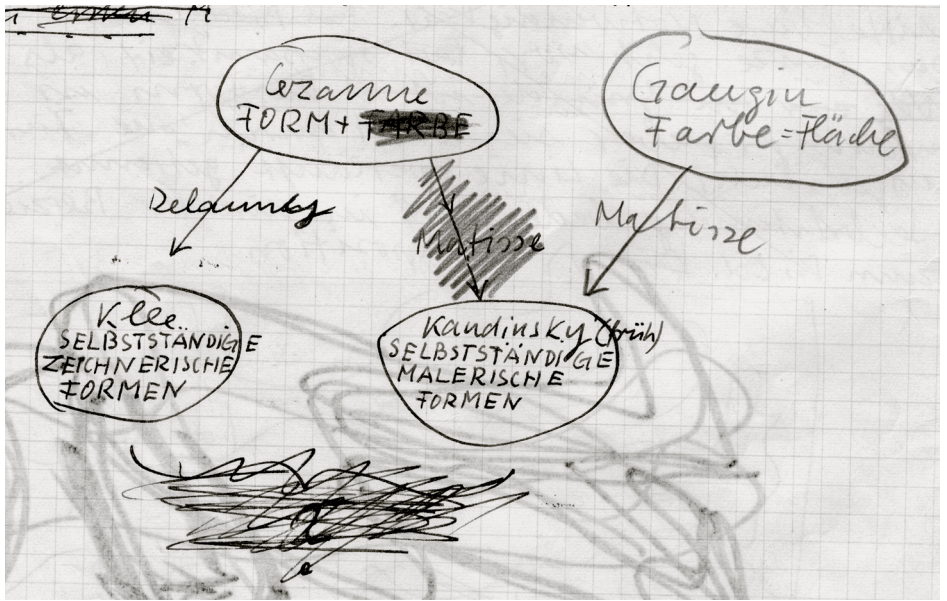 Cezanne
FORM + FARBE
Gaugin
Farbe = Fläche
Delaunay
Matisse
Matisse
Klee
SELBSTSTÄNDIGE
ZEICHNERISCHE
FORMEN
Kandinsky (früh)
SELBSTSTÄNDIGE
MALERISCHE
FORMEN